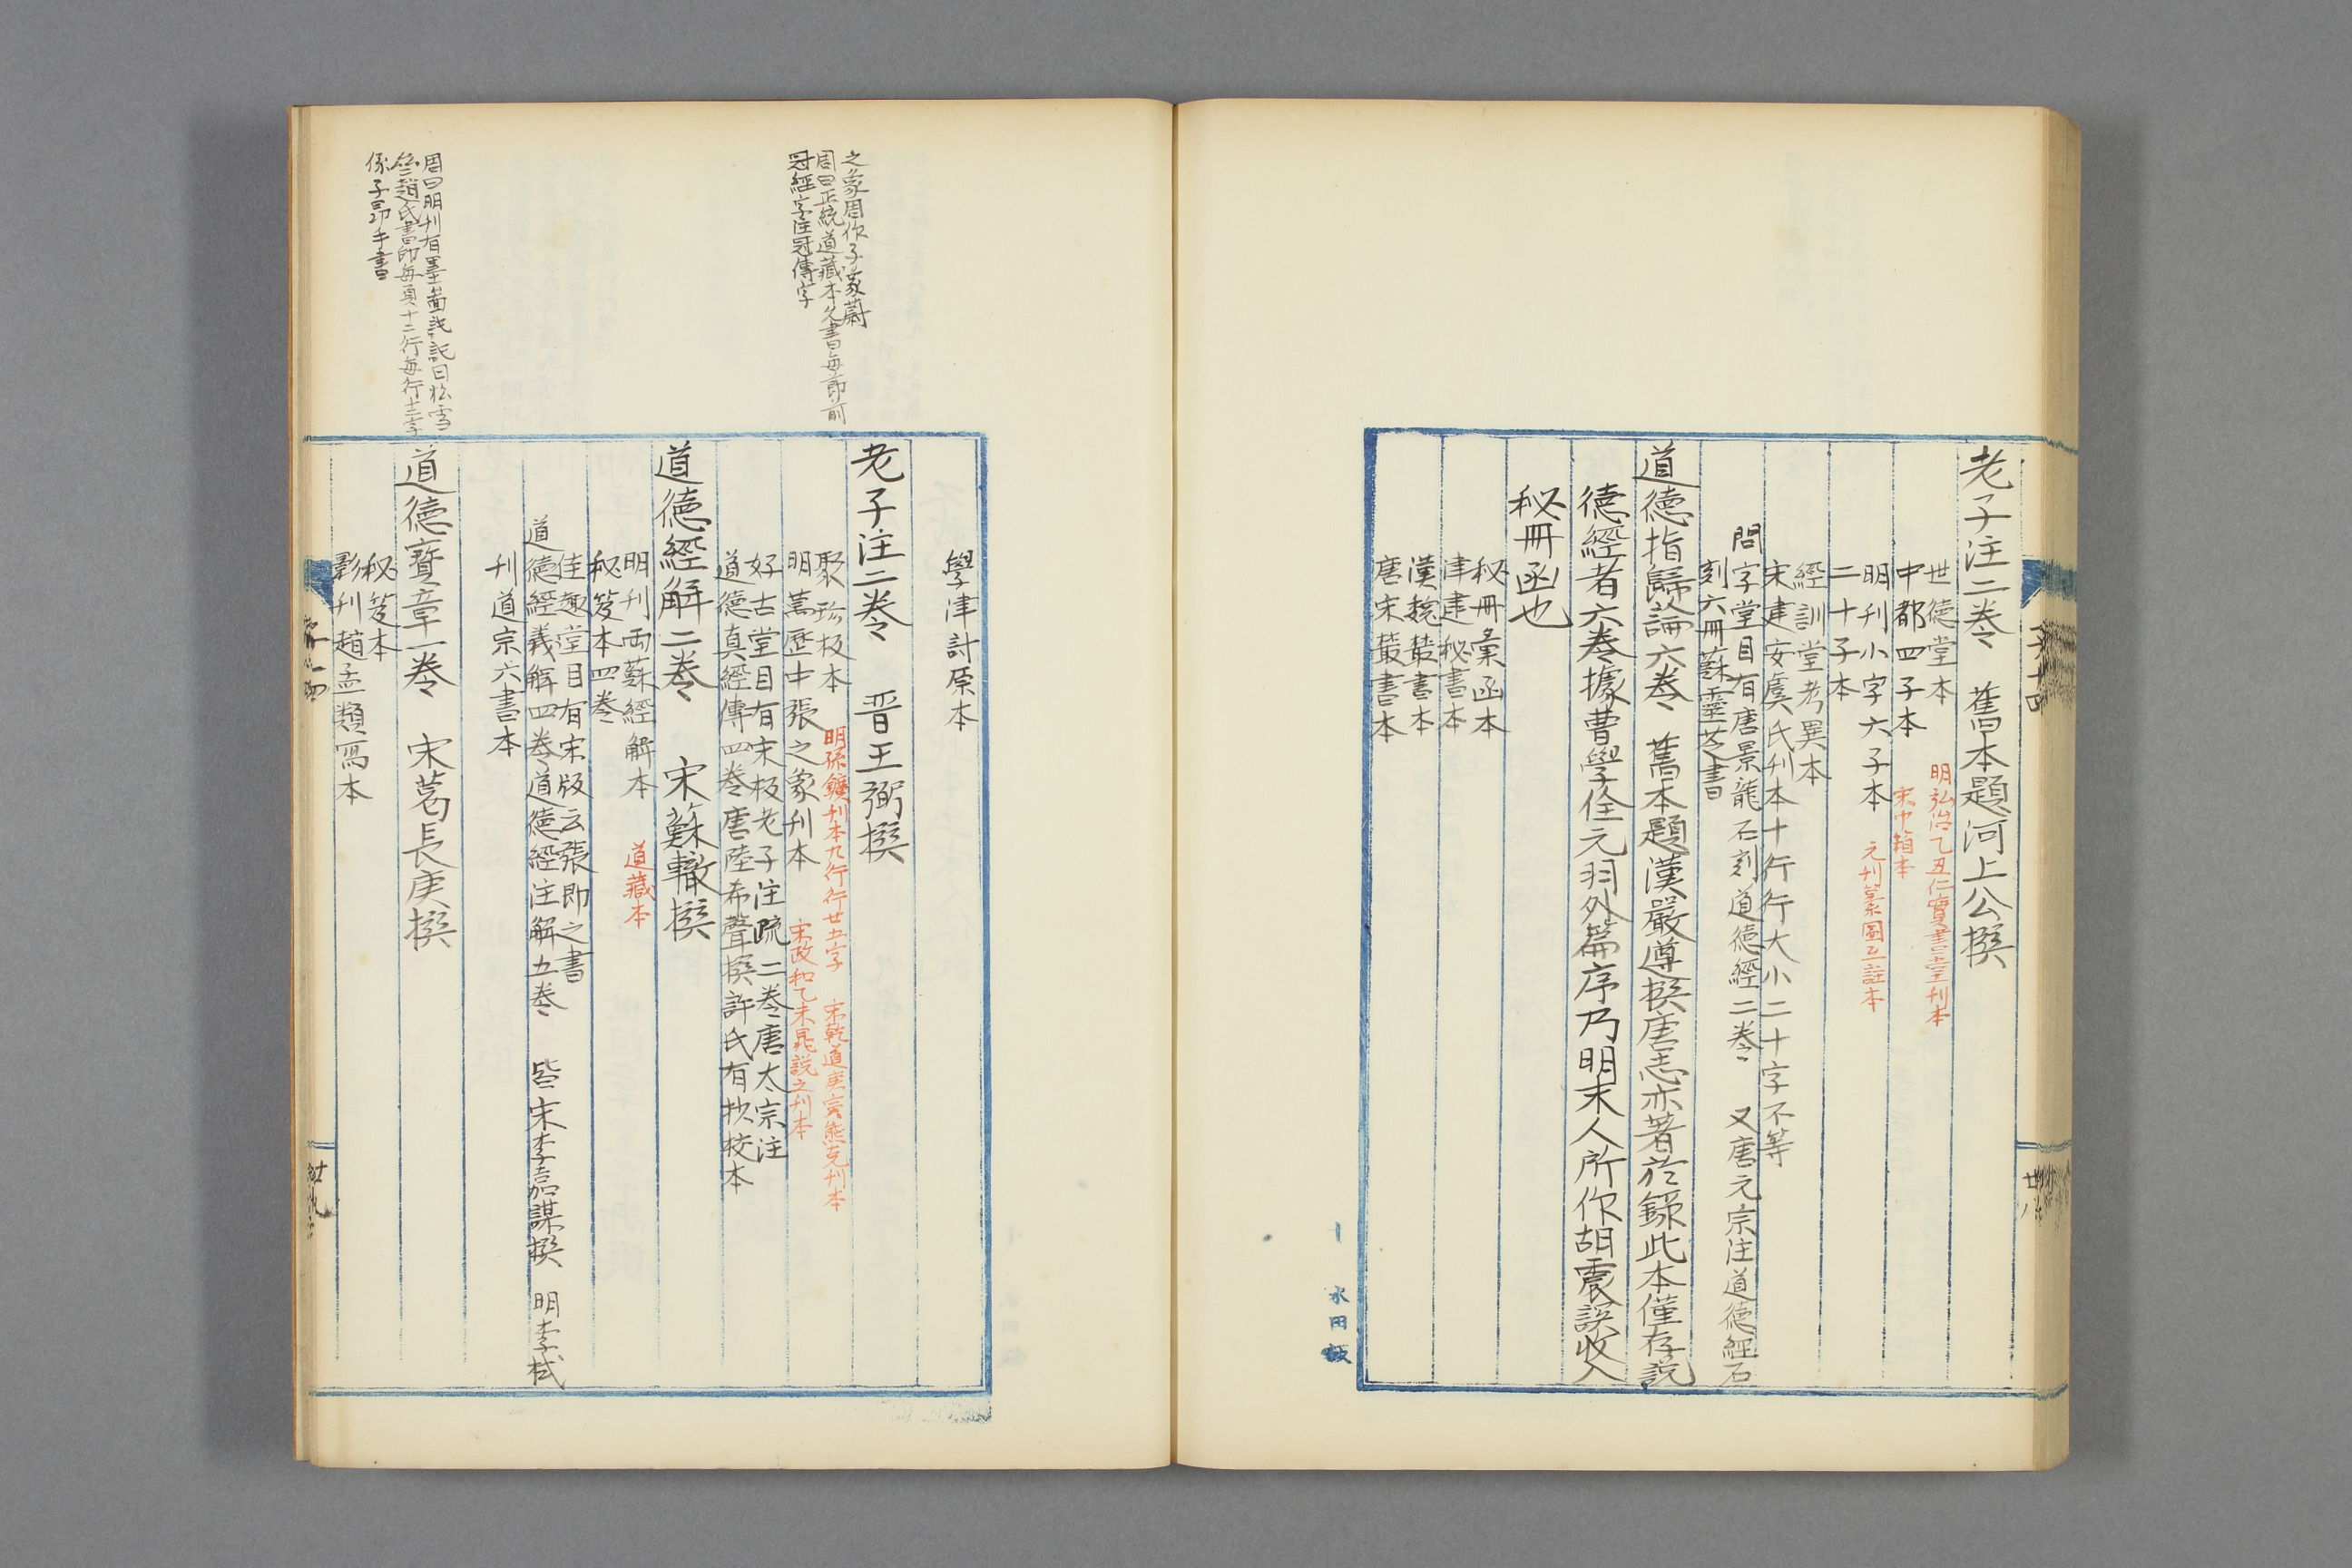 老子注二卷 舊本題河上公撰
世德堂本 明弘治乙丑仁寶書堂刊本
中都四子本 宋巾箱本
明刊小字六子本 元刊纂圖互註本
二十子本
經訓堂考異本
宋建安虞氏刊本十行行大小二十字不等
問字堂目有唐景龍石刻道德經二卷 又唐元宗注道德經石
刻六冊蘇靈芝書
道德指歸論六卷 舊本題漢嚴遵撰唐志亦著於錄此本僅存説
德經者六卷據曹學佺元羽外篇序乃明末人所作胡震誤收入
秘冊函也
秘冊彙函本
津逮秘書本
漢魏叢書本
唐宋叢書本
廿八
永田紙
學津討原本
之象周作子象蔚
周曰正統道藏本久書每節前
冠經字注冠傳字
老子注二卷 晋王弼撰
聚珍板本 明孫鑛刊本九行行廿五字 宋乾道庚寅熊克刊本
明萬歷中張之象刋本 宋政和乙未晁説之刋本
好古堂目有宋板老子注疏二卷唐太宗注
道德真經傳四卷唐陸希聲撰許氏有抄校本
道德經解二卷 宋蘇轍撰
明刋兩蘇經解本 道藏本
秘笈本四卷
佳趣堂目有宋版云張即之書
道德經義解四卷道德經注解五卷 皆宋李嘉謀撰 明李栻
刋道宗六書本
周曰明刋有墨
趙氏書印每頁十二行每行十二字
係子昂手書
道德寶章一卷 宋葛長庚撰
秘笈本
影刋趙孟頫寫本
廿九